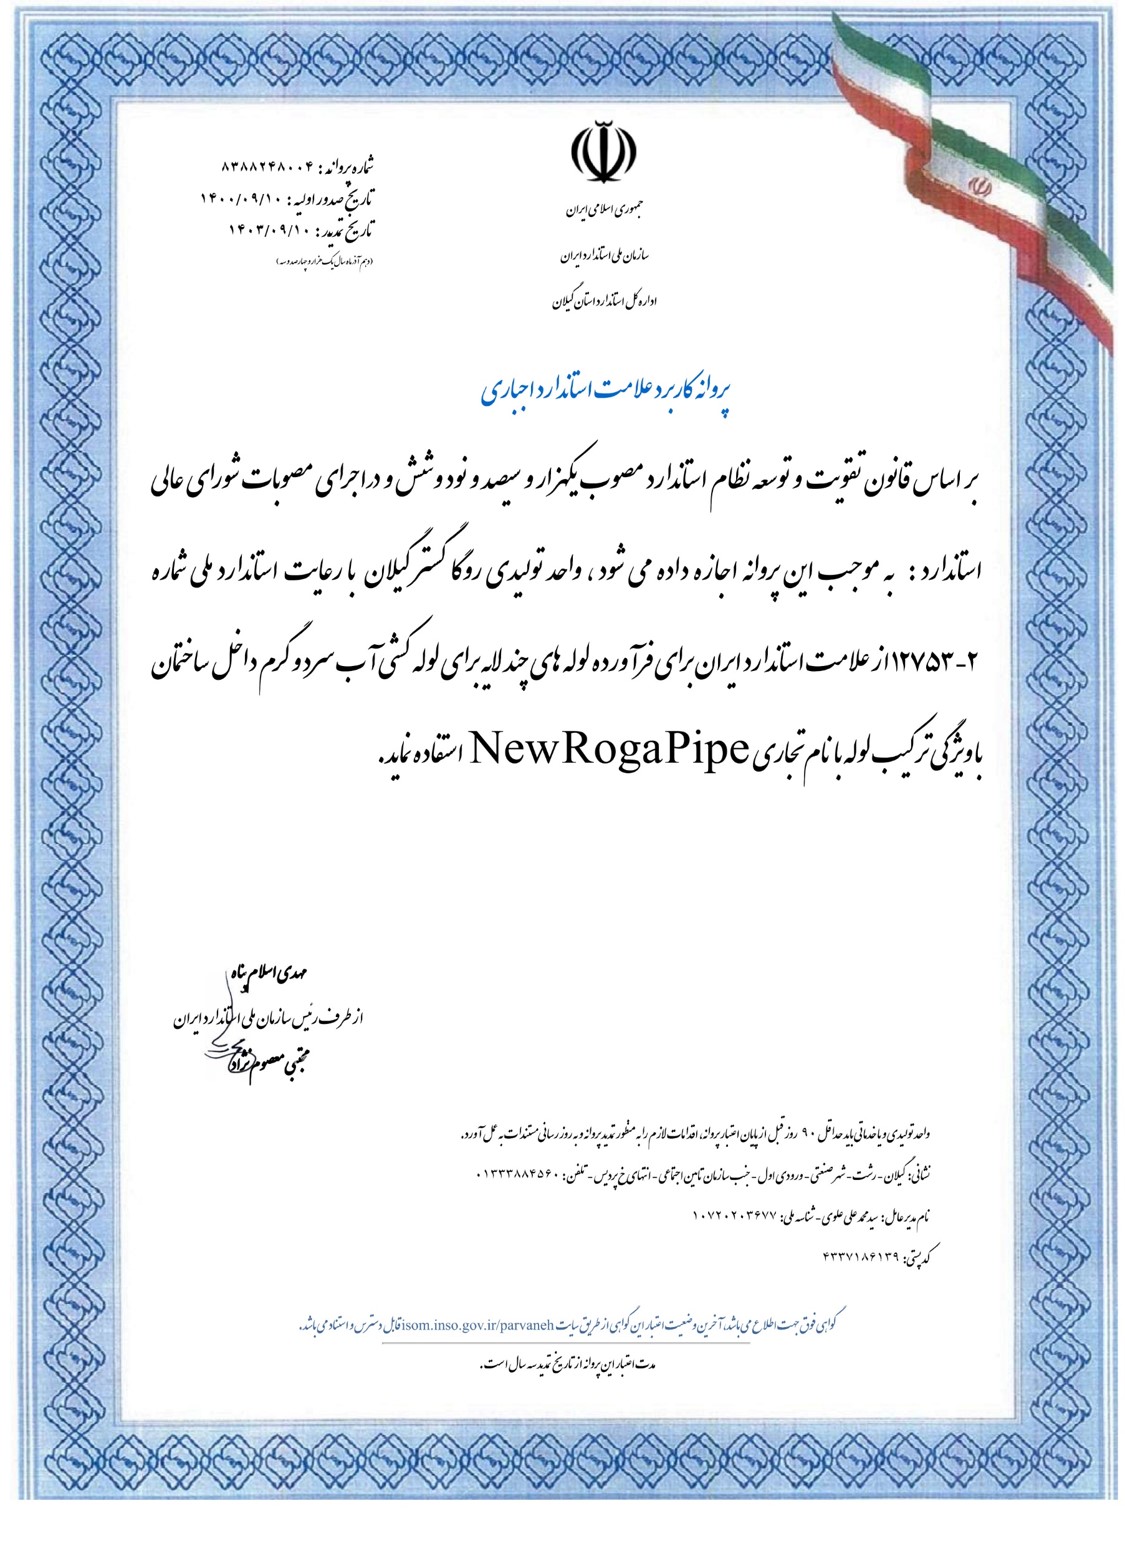 شماره پروانه : ۸۳۸۸۲۴۸۰۰۴
تاریخ صدور اولیه : ۱۴۰۰/۰۹/۱۰
تاریخ تمدید : ۱۴۰۳/۰۹/۱۰
(دهم آذر ماه سال یک هزار و چهارصد و سه)
جمهوری اسلامی ایران
سازمان ملی استاندارد ایران
اداره کل استاندارد استان گیلان
پروانه کاربرد علامت استاندارد اجباری
بر اساس قانون تقویت و توسعه نظام استاندارد مصوب یکهزار و سیصد و نود و شش و در اجرای مصوبات شورای عالی
استاندارد : به موجب این پروانه اجازه داده می شود ، واحد تولیدی روگا گستر گیلان با رعایت استاندارد ملی شماره
۱۲۷۵۳-۲ از علامت استاندارد ایران برای فرآورده لوله های چند لایه برای لوله کشی آب سرد و گرم داخل ساختمان
با ویژگی ترکیب لوله با نام تجاری NewRogaPipe استفاده نماید.
مهدی اسلام پناه
از طرف رئیس سازمان ملی استاندارد ایران
مجتبی معصوم نژاد
واحد تولیدی و یا خدماتی باید حداقل ۹۰ روز قبل از پایان اعتبار پروانه، اقدامات لازم را به منظور تمدید پروانه و به روز رسانی مستندات به عمل آورد.
نشانی: گیلان - رشت - شهر صنعتی - ورودی اول - جنب سازمان تامین اجتماعی - انتهای خ پردیس - تلفن: ۰۱۳۳۳۸۸۴۵۶۰
نام مدیر عامل: سید محمد علی علوی - شناسه ملی: ۱۰۷۲۰۲۰۳۶۷۷
کد پستی: ۴۳۳۷۱۸۶۱۳۹
گواهی فوق جهت اطلاع می باشد، آخرین وضعیت اعتبار این گواهی از طریق سایت isom.inso.gov.ir/parvaneh قابل دسترس و استناد می باشد.
مدت اعتبار این پروانه از تاریخ تمدید سه سال است.